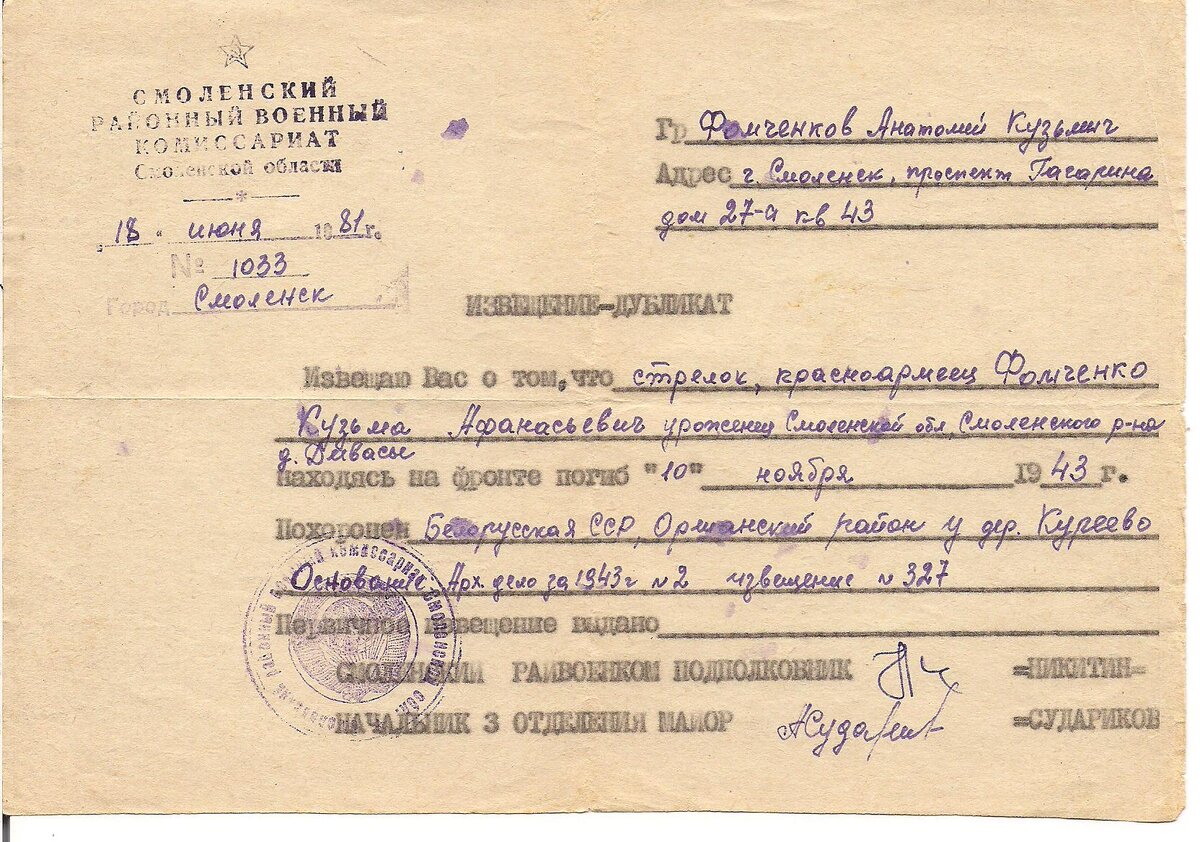 СМОЛЕНСКИЙ
РАЙОННЫЙ ВОЕННЫЙ
КОМИССАРИАТ
Смоленской области
„18" июня 1981г.
№ 1033
Город Смоленск
Гр Фомченков Анатолий Кузьмич
Адрес г. Смоленск, проспект Гагарина
дом 27-а кв 43
ИЗВЕЩЕНИЕ-ДУБЛИКАТ
Извещаю Вас о том, что стрелок, красноармеец Фомченко
Кузьма Афанасьевич уроженец Смоленской обл, Смоленского р-на
д. Дивасы
находясь на фронте погиб "10" ноября 1943 г.
Похоронен Белорусская ССР, Оршанский район у дер. Куреево
Основание Арх. дело за 1943г N 2 извещение N 327
Первичное извещение выдано
СМОЛЕНСКИЙ РАЙВОЕНКОМ ПОДПОЛКОВНИК =НИКИТИН=
НАЧАЛЬНИК 3 ОТДЕЛЕНИЯ МАЙОР =СУДАРИКОВ